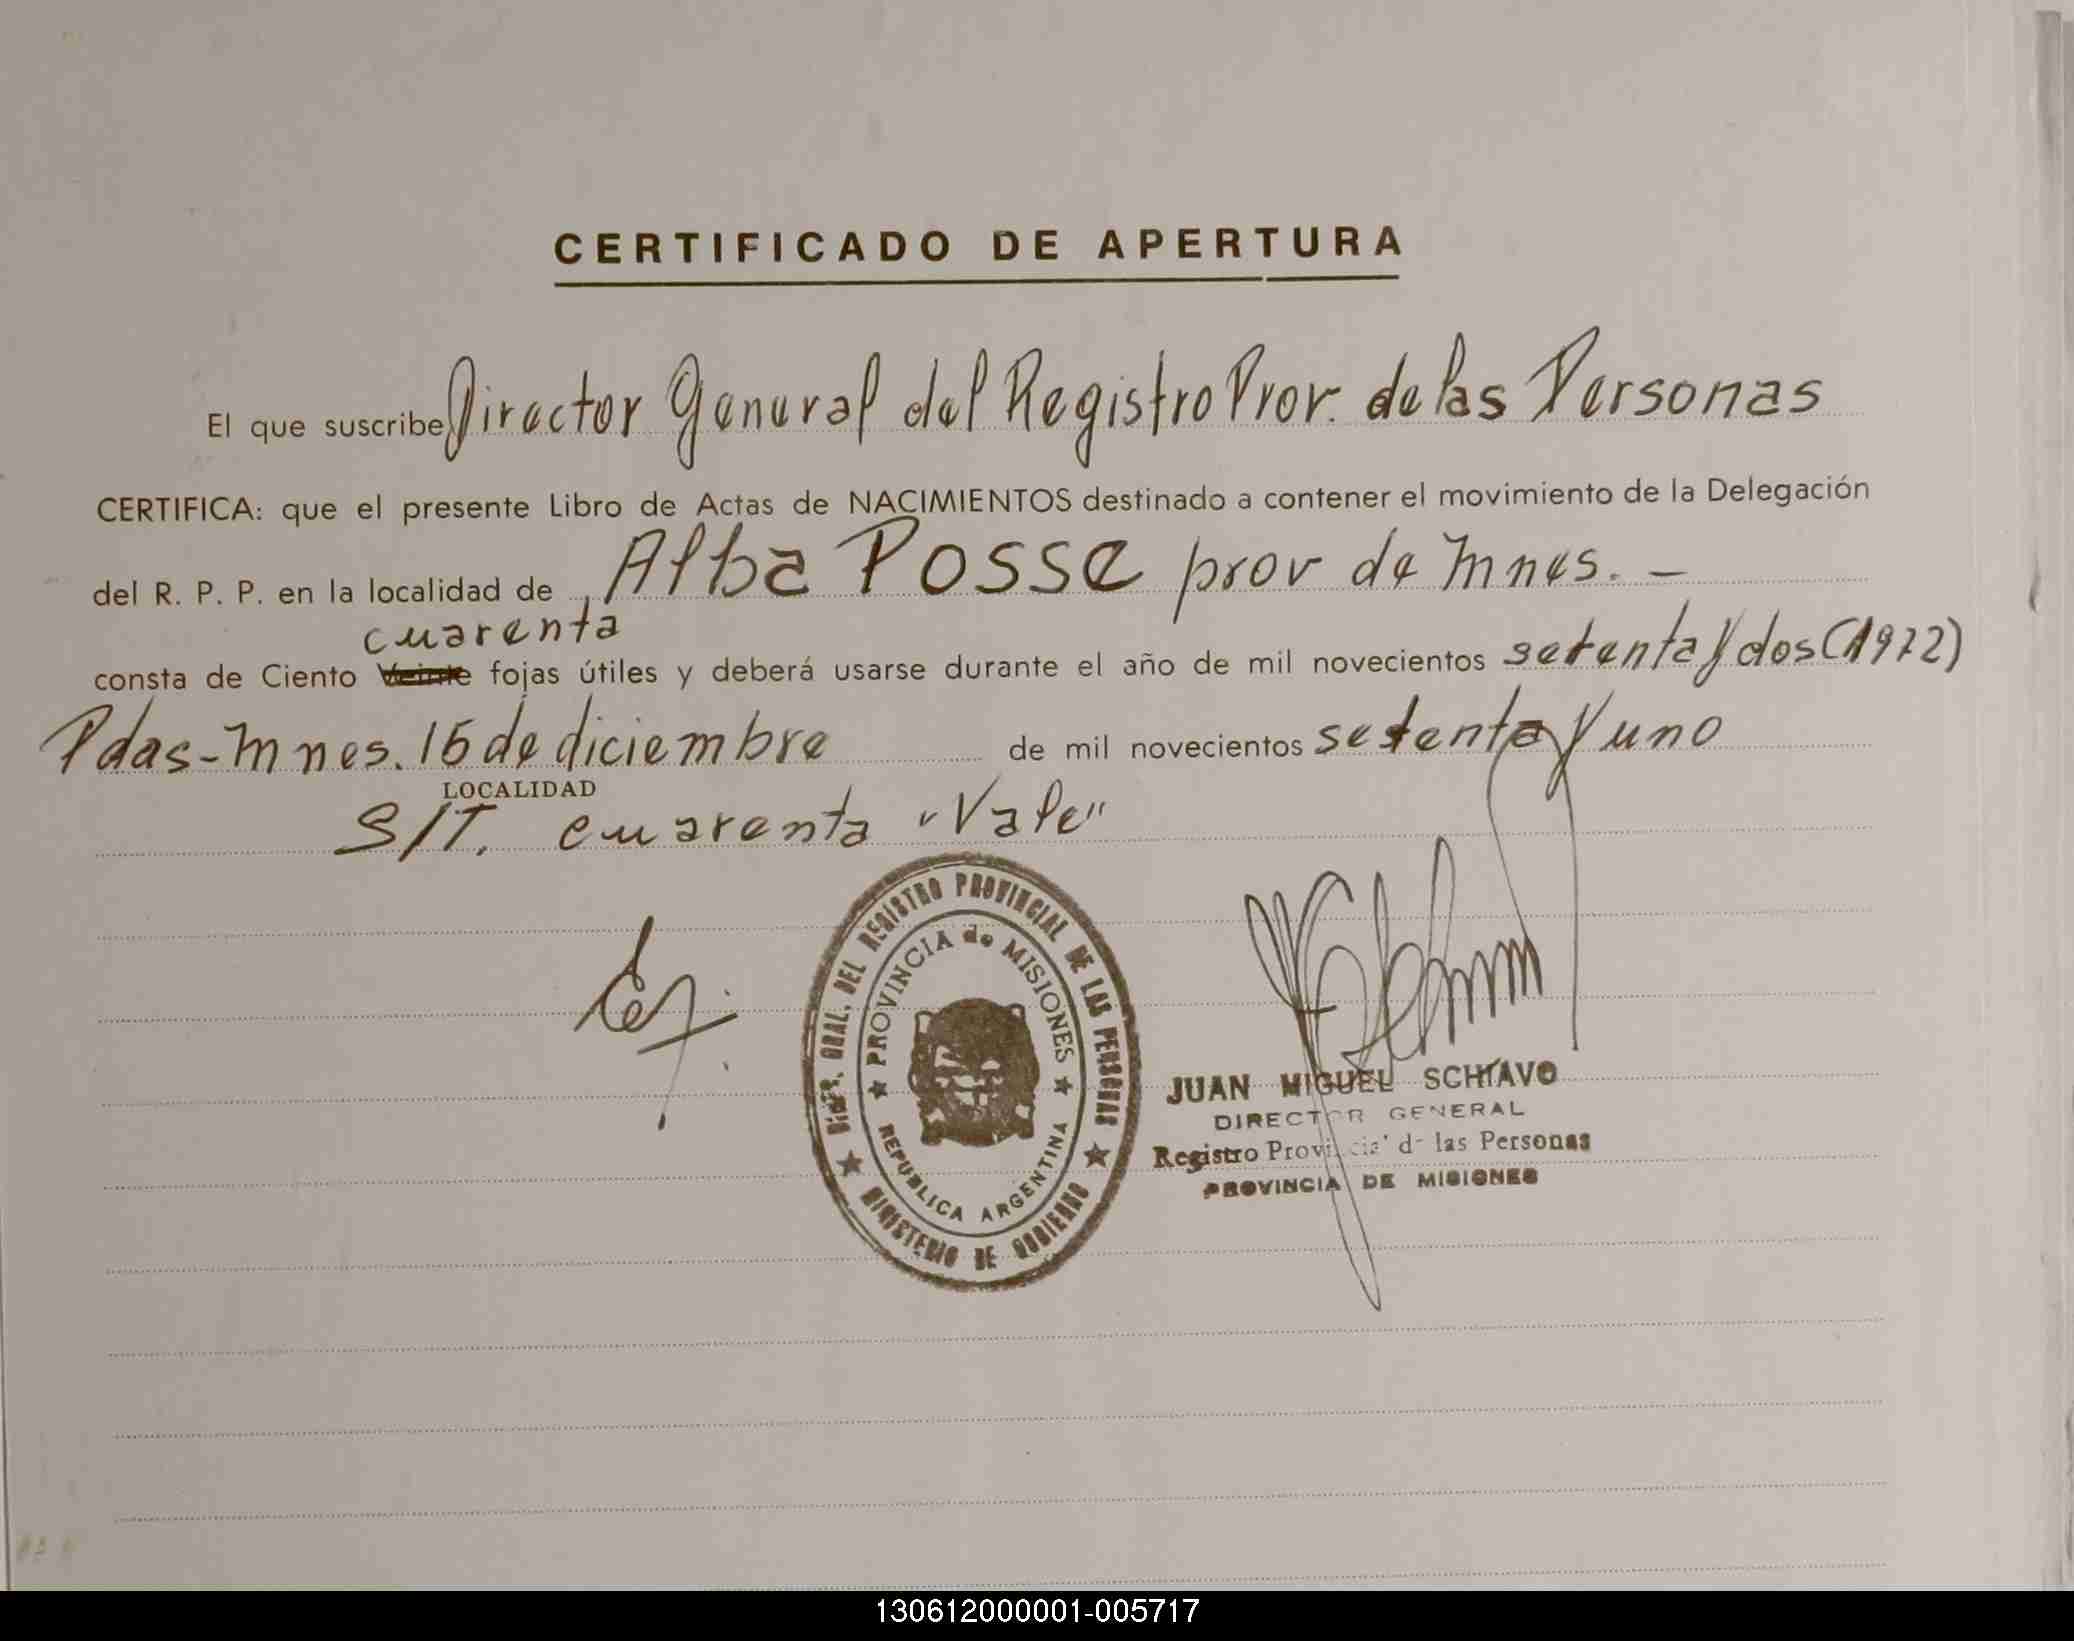 CERTIFICADO DE APERTURA
El que suscribe Director General del Registro Prov. de las Personas
CERTIFICA: que el presente Libro de Actas de NACIMIENTOS destinado a contener el movimiento de la Delegación
del R. P. P. en la localidad de Alba Posse prov de Mnes. —
cuarenta
consta de Ciento Veinte fojas útiles y deberá usarse durante el año de mil novecientos setenta y dos (1972)
Pdas-Mnes. 15 de diciembre de mil novecientos setenta y uno
LOCALIDAD
S/T. cuarenta "Vale"
DIREC. GRAL. DEL REGISTRO PROVINCIAL DE LAS PERSONAS
PROVINCIA de MISIONES
REPUBLICA ARGENTINA
MINISTERIO DE GOBIERNO
JUAN MIGUEL SCHIAVO
DIRECTOR GENERAL
Registro Provincial de las Personas
PROVINCIA DE MISIONES
130612000001-005717